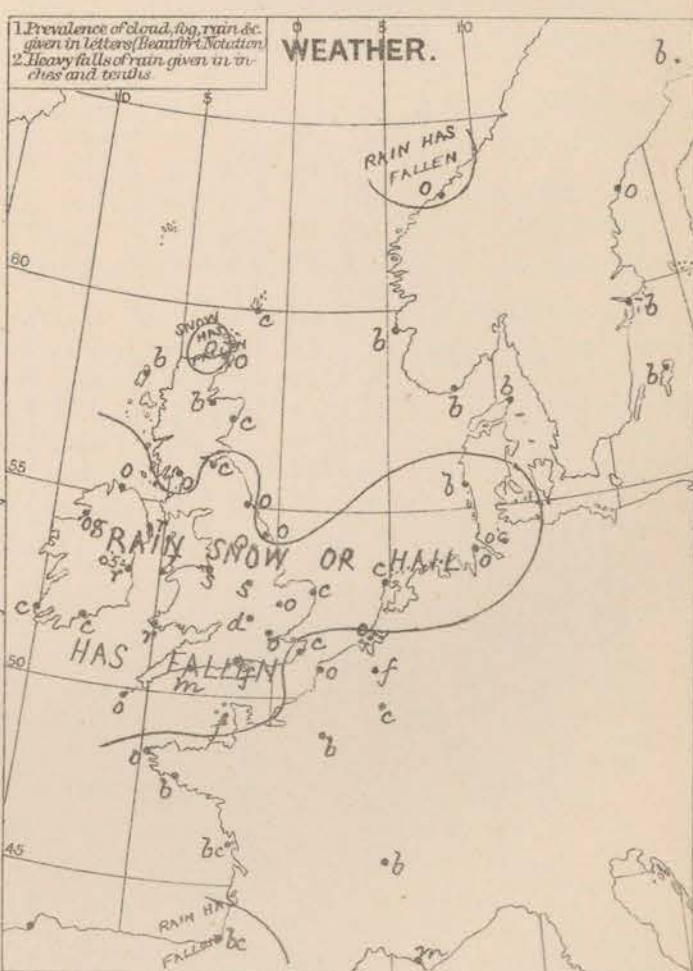 1. Prevalence of cloud, fog, rain &c.
given in letters (Beaufort Notation)
2. Heavy falls of rain given in in-
ches and tenths.
WEATHER.
10
5
0
5
10
b.
RAIN HAS
FALLEN
o
o
60
SNOW
HAS
FALLEN
c
b
b
b
o
b
b
b
b
c
55
o
o
c
b
o
o
og
r
RAIN SNOW OR HAIL
0.6
o
05
r
s
s
c
c
o
c
c
r
d
o
c
o
HAS FALLEN
50
m
f
o
f
o
c
o
b
b
bc
b
45
RAIN HA
FALLEN
bc
m